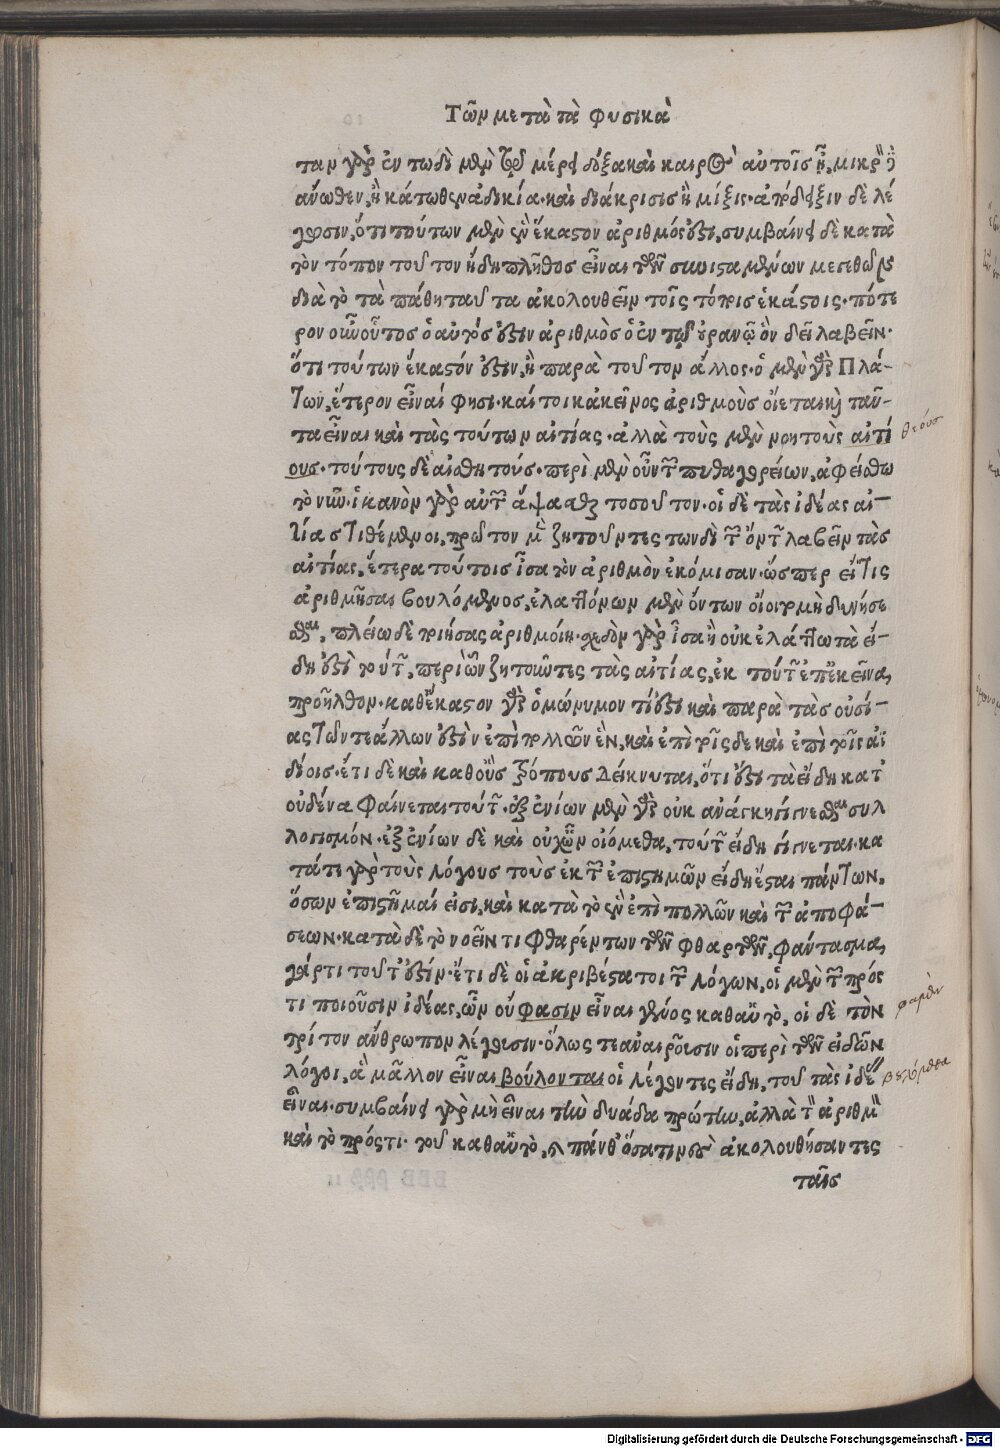 Τῶν μετὰ τὰ φυσικὰ
ταν γὰρ ἐν τωδὶ μὲν τῷ μέρει δόξα καὶ καιρὸς αὐτοῖς ᾖ, μικρὸν δὲ
ἄνωθεν, ἢ κάτωθεν ἀδικία· καὶ διάκρισις ἢ μίξις· ἀπόδειξιν δὲ λέ
γωσιν, ὅτι τούτων μὲν ἓν ἕκαστον ἀριθμός ἐστι, συμβαίνει δὲ κατὰ
τὸν τόπον τοῦτον ἤδη πλῆθος εἶναι τῶν συνισταμένων μεγεθῶν
διὰ τὸ τὰ πάθη ταῦτα ἀκολουθεῖν τοῖς τόποις ἑκάστοις· πότε
ρον οὖν οὗτος ὁ αὐτός ἐστιν ἀριθμὸς ὁ ἐν τῷ οὐρανῷ ὃν δεῖ λαβεῖν·
ὅτι τούτων ἕκαστόν ἐστιν, ἢ παρὰ τοῦτον ἄλλος· ὁ μὲν γὰρ Πλά-
των, ἕτερον εἶναί φησι· καίτοι κἀκεῖνος ἀριθμοὺς οἴεται καὶ ταῦ-
τα εἶναι καὶ τὰς τούτων αἰτίας· ἀλλὰ τοὺς μὲν νοητοὺς αἰτί
θεόυσ
ους· τούτους δὲ αἰσθητούς· περὶ μὲν οὖν τῶν πυθαγορείων, ἀφείσθω
τὸ νῦν· ἱκανὸν γὰρ αὐτῶν ἅψασθαι τοσοῦτον· οἱ δὲ τὰς ἰδέας αἰ-
τίας τιθέμενοι, πρῶτον μὲν ζητοῦντες τωνδὶ τῶν ὄντων λαβεῖν τὰς
αἰτίας, ἕτερα τούτοις ἴσα τὸν ἀριθμὸν ἐκόμισαν· ὥσπερ εἴ τις
ἀριθμῆσαι βουλόμενος, ἐλαττόνων μὲν ὄντων οἴοιτο μὴ δυνήσε
σθαι, πλείω δὲ ποιήσας ἀριθμοίη· σχεδὸν γὰρ ἴσα ἢ οὐκ ἐλάττω τὰ εἴ-
δη ἐστὶ τούτων, περὶ ὧν ζητοῦντες τὰς αἰτίας, ἐκ τούτων ἐπ' ἐκεῖνα,
προῆλθον· καθ' ἕκαστον γὰρ ὁμώνυμον τί ἐστι καὶ παρὰ τὰς οὐσί-
ας τῶν τε ἄλλων ἐστὶν ἐπὶ πολλῶν ἓν, καὶ ἐπὶ τοῖς δε καὶ ἐπὶ τοῖς ἀϊ
δίοις· ἔτι δὲ καὶ καθ' οὓς τρόπους δείκνυται, ὅτι ἐστὶ τὰ εἴδη κατ'
οὐδένα φαίνεται τούτων· ἐξ ἐνίων μὲν γὰρ οὐκ ἀνάγκη γίγνεσθαι συλ
λογισμόν· ἐξ ἐνίων δὲ καὶ οὐχ ὧν οἰόμεθα, τούτων εἴδη γίγνεται· κα
τά τι γὰρ τοὺς λόγους τοὺς ἐκ τῶν ἐπιστημῶν εἴδη ἔσται πάντων,
ὅσων ἐπιστῆμαί εἰσι, καὶ κατὰ τὸ ἓν ἐπὶ πολλῶν καὶ τῶν ἀποφά-
σεων· κατὰ δὲ τὸ νοεῖν τι φθαρέντων τῶν φθαρτῶν, φάντασμα
γάρ τι τούτων ἐστίν· ἔτι δὲ οἱ ἀκριβέστατοι τῶν λόγων, οἱ μὲν τῶν πρός
τι ποιοῦσιν ἰδέας, ὧν οὔ φασιν εἶναι γένος καθ' αὑτὸ, οἱ δὲ τὸν
φαμὲν
τρίτον ἄνθρωπον λέγουσιν· ὅλως τε ἀναιροῦσιν οἱ περὶ τῶν εἰδῶν
λόγοι, ἃ μᾶλλον εἶναι βούλονται οἱ λέγοντες εἴδη, τοῦ τὰς ἰδέας
βουλόμεθα
εἶναι· συμβαίνει γὰρ μὴ εἶναι τὴν δυάδα πρώτην, ἀλλὰ τὸν ἀριθμὸν
καὶ τὸ πρός τι τοῦ καθ' αὑτὸ, καὶ πάνθ' ὅσα τινὲς ἀκολουθήσαντες
ταῖς
Digitalisierung gefördert durch die Deutsche Forschungsgemeinschaft - DFG